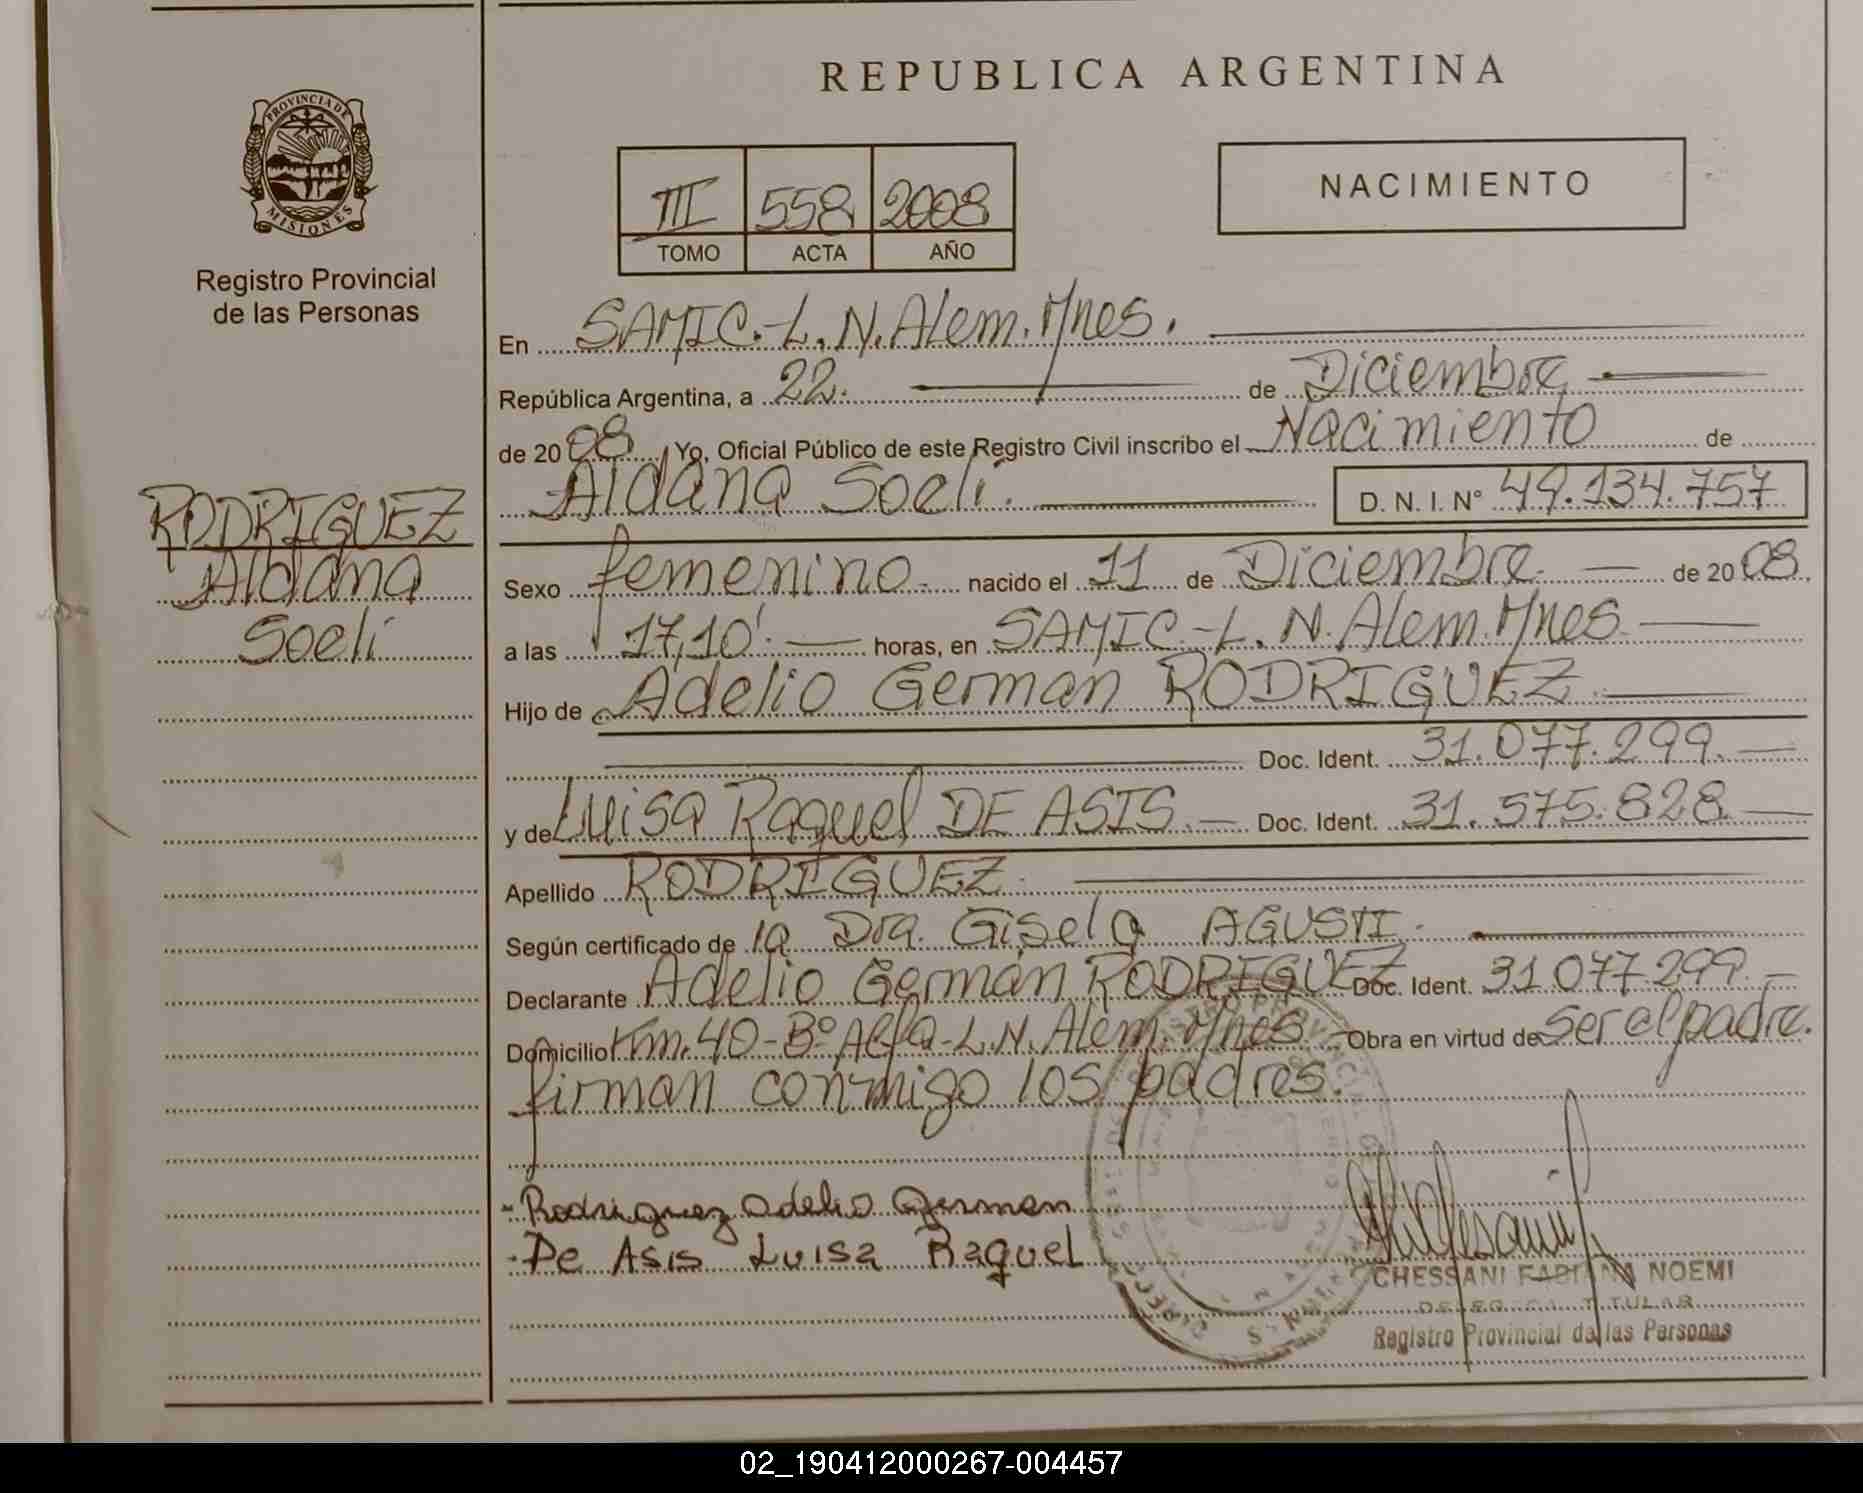 REPUBLICA ARGENTINA
PROVINCIA DE
MISIONES
Registro Provincial
de las Personas
NACIMIENTO
III 558 2008
TOMO ACTA AÑO
En SAMIC.-L.N.Alem.Mnes.
República Argentina, a 22. de Diciembre
de 2008, Yo, Oficial Público de este Registro Civil inscribo el Nacimiento de
Aldana Soeli. D. N. I. N° 49.134.757
RODRIGUEZ
Aldana
Soeli
Sexo femenino nacido el 11 de Diciembre de 2008
a las 17,10'. horas, en SAMIC.-L.N.Alem.Mnes
Hijo de Adelio German RODRIGUEZ
Doc. Ident. 31.077.299.
y de Luisa Raquel DE ASIS Doc. Ident. 31.575.828
Apellido RODRIGUEZ
Según certificado de la Dra. Gisela AGUSTI.
Declarante Adelio Germán RODRIGUEZ Doc. Ident. 31.077.299
Domicilio Km.40-B° Alfa-L.N.Alem.Mnes Obra en virtud de ser el padre.
firman conmigo los padres.
Rodriguez Adelio German
De Asis Luisa Raquel
CHESSANI FABIANA NOEMI
DELEGADA TITULAR
Registro Provincial de las Personas
02_190412000267-004457